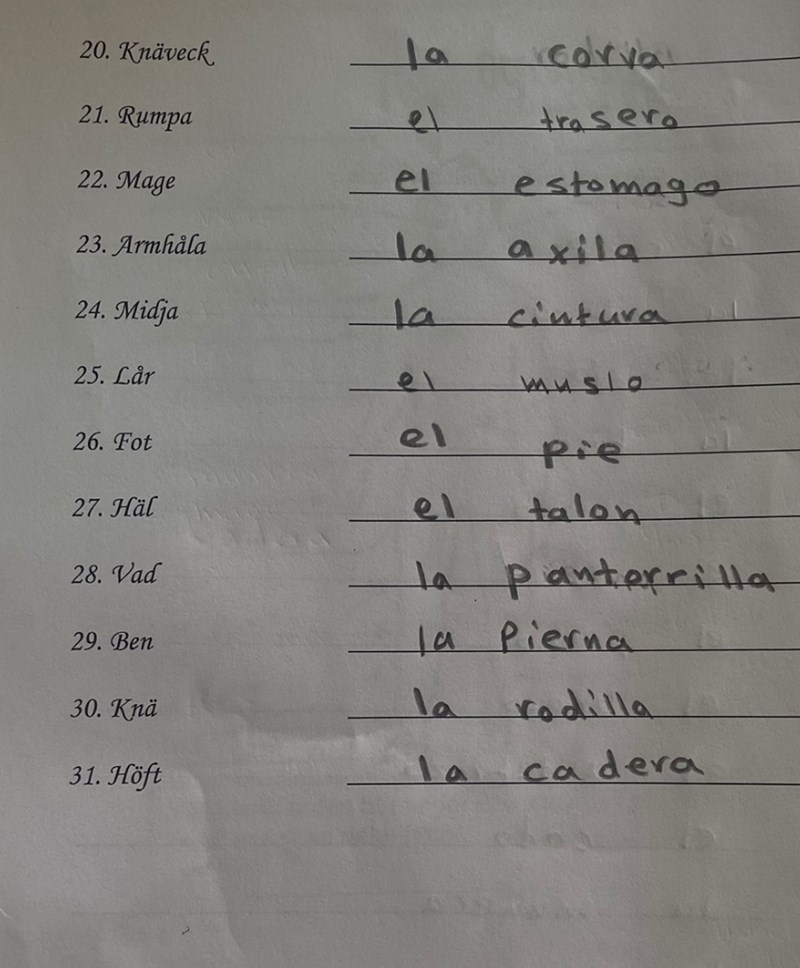 20. Knäveck la corva
21. Rumpa el trasero
22. Mage el estomago
23. Armhåla la axila
24. Midja la cintura
25. Lår el muslo
26. Fot el pie
27. Häl el talon
28. Vad la pantorrilla
29. Ben la Pierna
30. Knä la rodilla
31. Höft la cadera